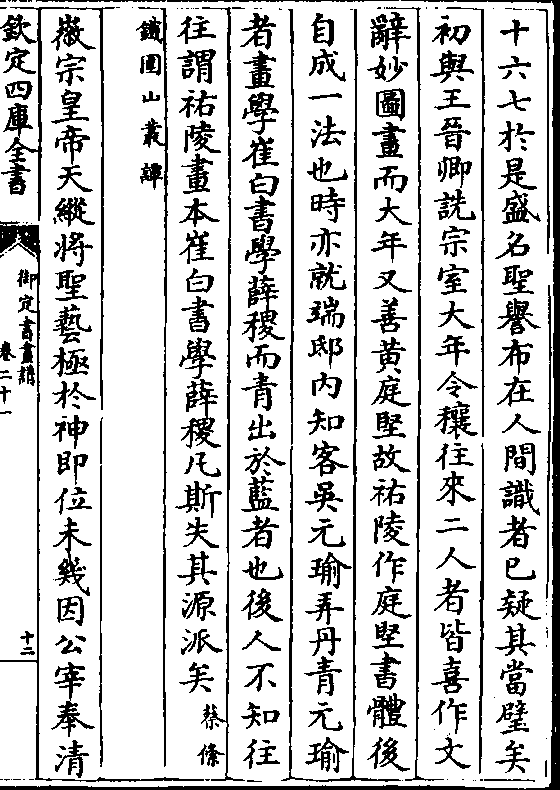 十六七於是盛名聖譽布在人間識者已疑其當璧矣
初與王晉卿詵宗室大年令穰往來二人者皆喜作文
辭妙圖畫而大年又善黃庭堅故祐陵作庭堅書體後
自成一法也時亦就端邸內知客吳元瑜弄丹青元瑜
者畫學崔白書學薛稷而青出於藍者也後人不知往
往謂祐陵畫本崔白書學薛稷凡斯失其源派矣蔡絛
鐵圍山叢譚
徽宗皇帝天縱將聖藝極於神即位未幾因公宰奉清
欽定四庫全書
御定書畫譜
卷二十一
十二